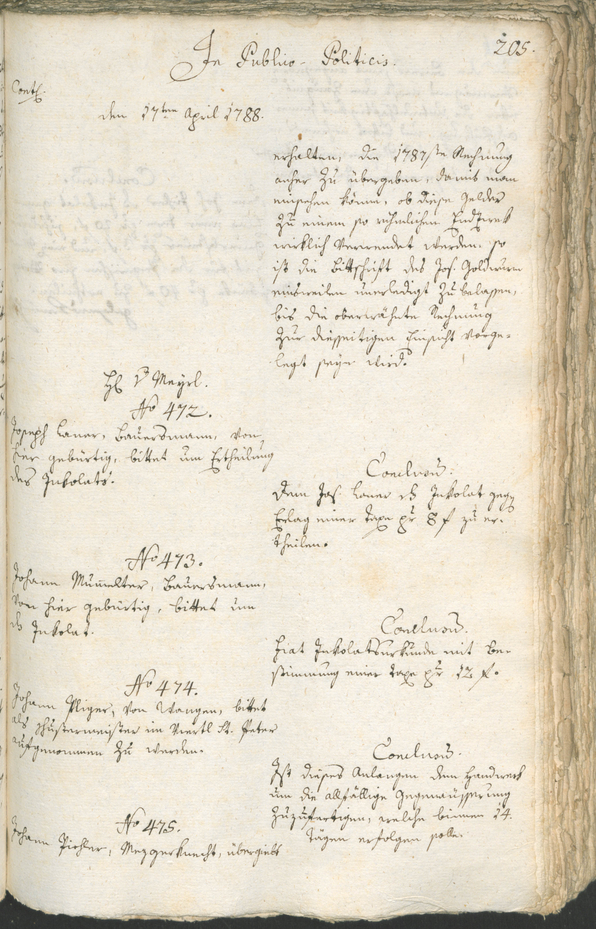 In Publico-Politicis.
205.
Cont.
den 17ten April 1788.
erhalten, die 1787ste Rechnung
anher zu übergeben, damit man
einsehen könne, ob diese Gelder
zu einem so rühmlichen Endzweck
wirklich verwendet werden. so
ist die Bittschrift des Jos. Goldwurm
einsweilen unerledigt zu belassen,
bis die oberwähnte Rechnung
zur diesseitigen Einsicht vorge-
legt seyn wird.
Meyrl.
No 472.
Joseph Laner, Bauersmann, von
hier gebürtig, bittet um Ertheilung
des Inkolats.
Conclusum.
Dem Jos. Laner das Inkolat gegen
Erlag einer Taxe pr 8 f zu er-
theilen.
No 473.
Johann Mumelter, Bauersmann,
von hier gebürtig, bittet um
das Inkolat.
Conclusum.
Fiat Inkolatsurkunde mit Be-
stimmung einer Taxe pr 12 f.
No 474.
Johann Pliger, von Wangen, bittet
als Schustermeister im Viertl St. Peter
aufgenommen zu werden.
Conclusum.
Ist dieses Anlangen dem Handwerk
um die allfällige Gegenäusserung
zuzufertigen, welche binnen 14.
Tägen erfolgen solle.
No 475.
Johann Pichler, Mezgerknecht, übergiebt